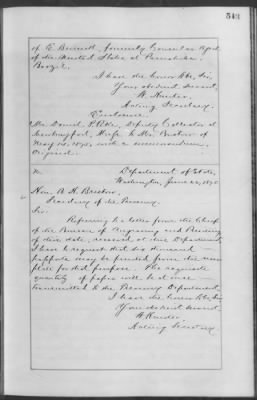 543
of E. Bennett, formerly Consular Agent
of the United States at Parnahiba,
Brazil.
I have the honor &c, Sir,
Your obedient servant,
W. Hunter,
Acting Secretary.
Enclosure.
Mr. Daniel Deputy Collector at
Newburyport, Mass. to Mr. Bristow of
May 14, 1875, with a memorandum.
Original.
Department of State,
Washington, June 22, 1875
Hon. B. H. Bristow,
Secretary of the Treasury.
Sir:
Referring to a letter from the Chief
of the Bureau of Engraving and Printing
of this date, received at this Department,
I have to request that six thousand
passports may be printed from the new
plate for that purpose. The requisite
quantity of paper will be at once
transmitted to the Treasury Department.
I have the honor &c, Sir,
Your obedient servant
W. Hunter,
Acting Secretary.